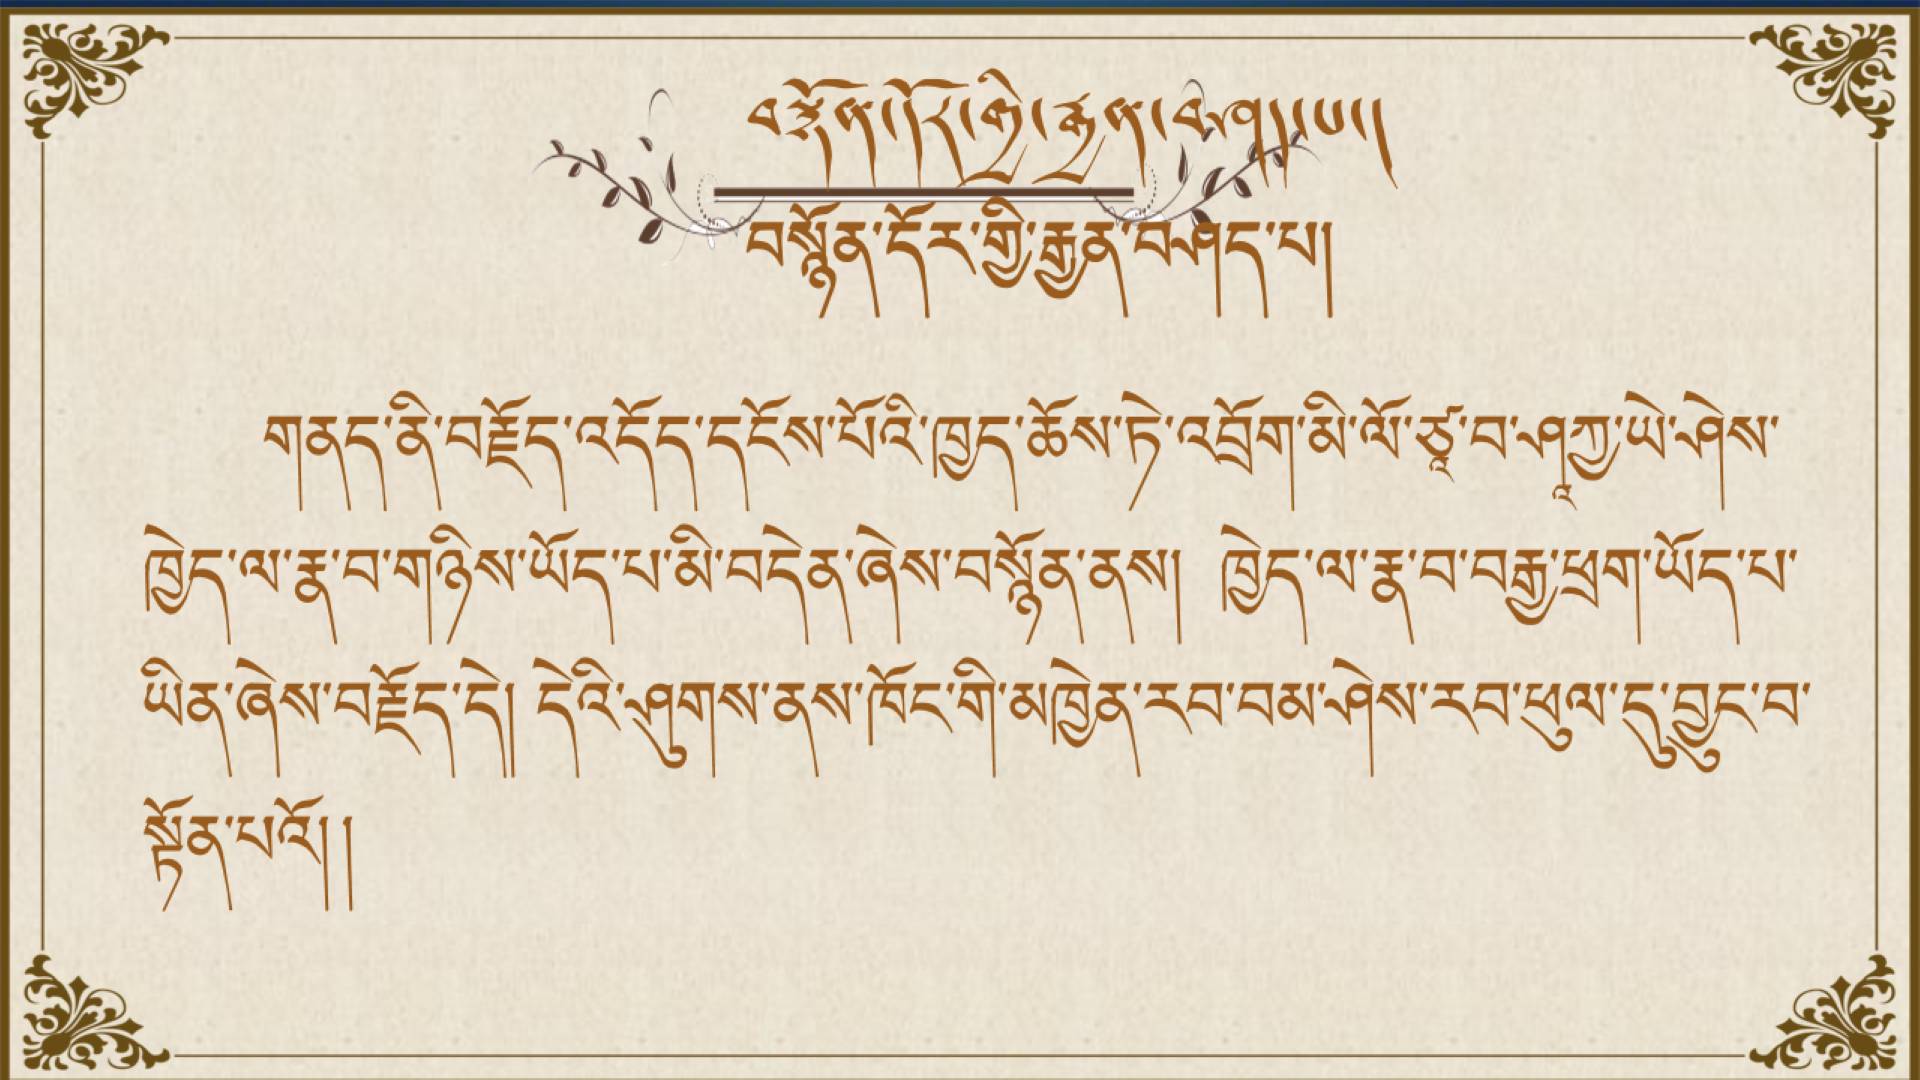 བསྙོན་དོར་གྱི་རྒྱན་བཤད་པ།
བསྙོན་དོར་གྱི་རྒྱན་བཤད་པ།
གནད་ནི་བརྗོད་འདོད་དངོས་པོའི་ཁྱད་ཆོས་ཏེ་འབྲོག་མི་ལོ་ཙཱ་བ་ཤཱཀྱ་ཡེ་ཤེས་
ཁྱེད་ལ་རྣ་བ་གཉིས་ཡོད་པ་མི་བདེན་ཞེས་བསྙོན་ནས། ཁྱེད་ལ་རྣ་བ་བརྒྱ་ཕྲག་ཡོད་པ་
ཡིན་ཞེས་བརྗོད་དེ། དེའི་ཤུགས་ནས་ཁོང་གི་མཁྱེན་རབ་བམ་ཤེས་རབ་ཕུལ་དུ་བྱུང་བ་
སྟོན་པའོ།།